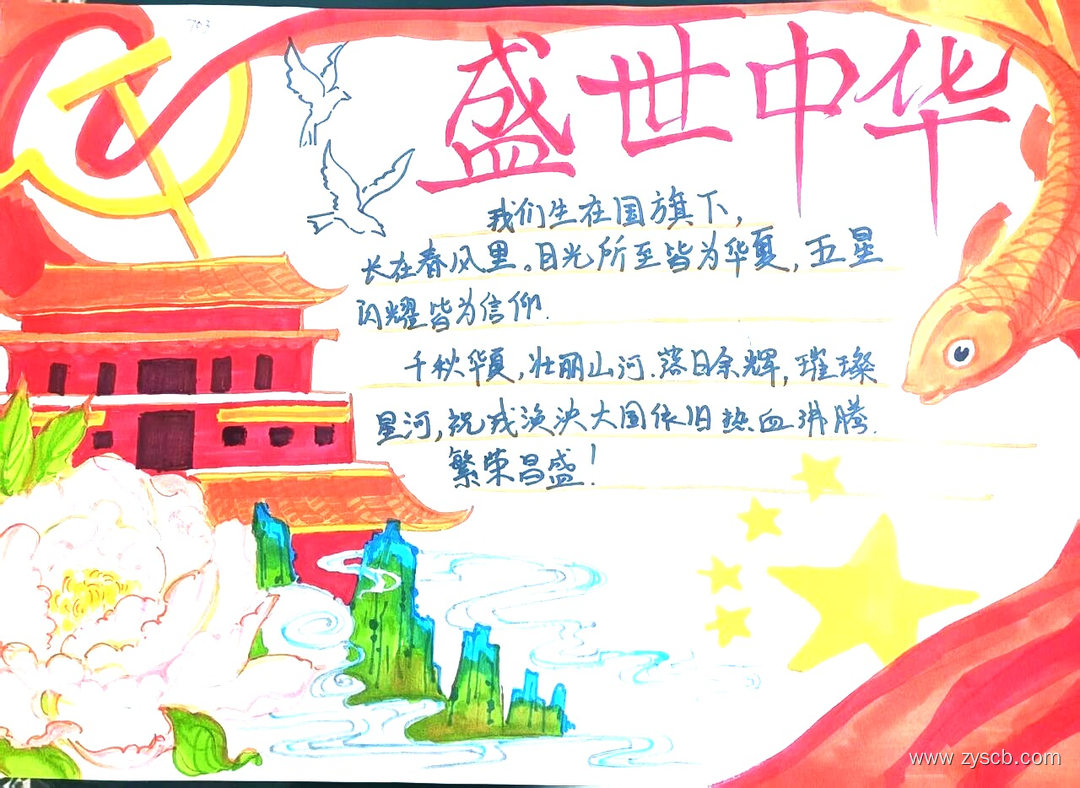 703
盛世中华
我们生在国旗下,
长在春风里。目光所至皆为华夏,五星
闪耀皆为信仰.
千秋华夏,壮丽山河.落日余辉,璀璨
星河,祝我泱泱大国依旧热血沸腾.
繁荣昌盛!
www.zyscb.com